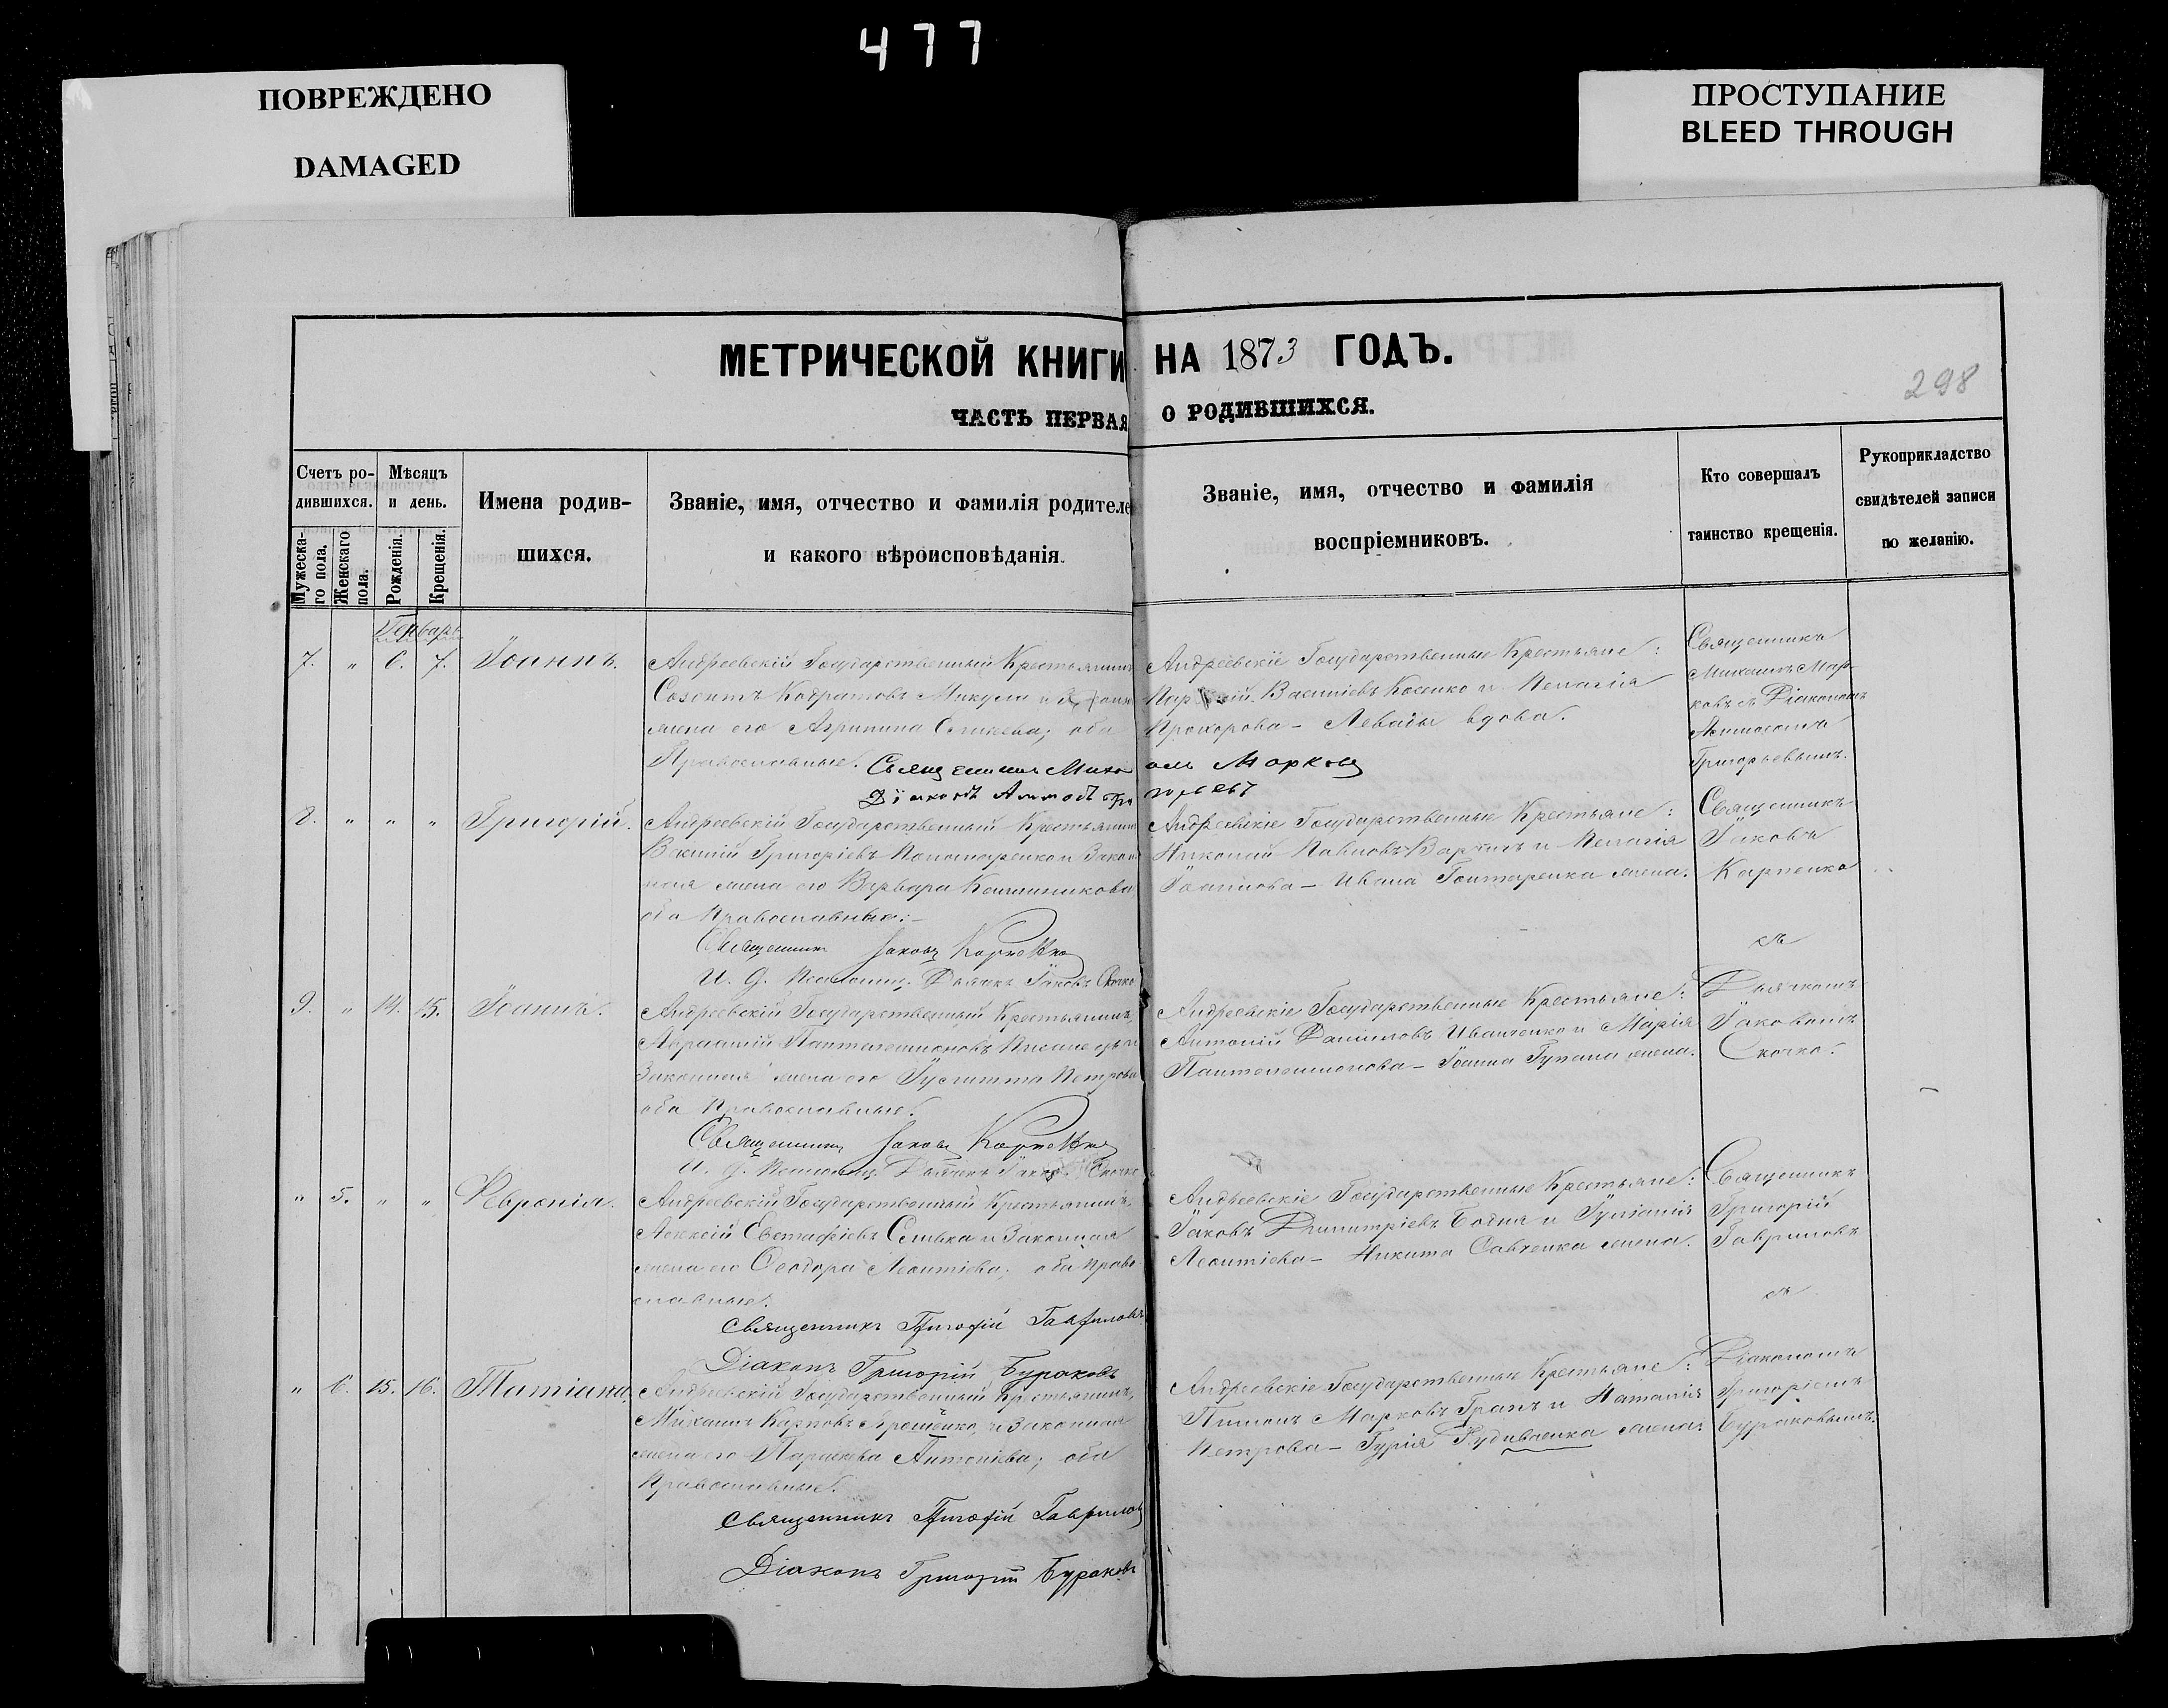 477
ПОВРЕЖДЕНО
DAMAGED
ПРОСТУПАНИЕ
BLEED THROUGH
МЕТРИЧЕСКОЙ КНИГИ НА 1873 ГОДЪ.
298
ЧАСТЬ ПЕРВАЯ О РОДИВШИХСЯ.
Счетъ ро-
дившихся.
Мужеска-
го пола.
Женскаго
пола.
Мѣсяцъ
и день.
Рожденія.
Крещенія.
Имена родив-
шихся.
Званіе, имя, отчество и фамилія родителе
и какого вѣроисповѣданія.
Званіе, имя, отчество и фамилія
воспріемниковъ.
Кто совершалъ
таинство крещенія.
Рукоприкладство
свидѣтелей записи
по желанію.
Генварь
7. " 6. 7. Іоаннъ.
Андреевскій Государственный Крестьянинъ
Созонтъ Кодратовъ Микула и
жена его Агрипина; оба
Православные.
Священникъ Миха
Діаконъ
Андреевскіе Государственные Крестьяне:
Василіевъ Косенко и Пелагія
Прохорова – вдова.
аилъ Марковъ
Священникъ
Михаилъ Мар-
ковъ съ Діакономъ
Григорьевымъ.
8. " " " Григорій.
Андреевскій Государственный Крестьянин
Василій Григоріевъ Пономаренко и Закон
ная жена его Варвара
оба Православные:–
Священник Іаковъ Карпенко
И. Д. Псаломщ. Дьячекъ Іаковъ Скочко
Андреевскіе Государственные Крестьяне:
Николай Павловъ и Пелагія
Іоаннова – Ивана Гонтаренка жена.
Священникъ
Іаковъ
Карпенко
съ
Дьячкомъ
Іаковомъ
Скочко.
9. " 14. 15. Іоаннъ.
Андреевскій Государственный Крестьянинъ,
Пантелеимоновъ
Законная жена его Іулитта Петрова
оба Православные.
Священникъ Іаковъ Карпенко
И. Д. Псаломщ. Дьячекъ Іаковъ Скочко
Андреевскіе Государственные Крестьяне:
Антоній Даніиловъ Иванченко и Марія
Пантелеимонова – Іоанна жена.
" 5. " " Февронія.
Андреевскій Государственный Крестьянинъ,
Алексій Евстафіевъ и Законная
жена его Ѳеодора Леонтіева; оба право
славные.
Священникъ Григорій Гавриловъ
Діаконъ Григорій Бураковъ
Андреевскіе Государственные Крестьяне:
Іаковъ Димитріевъ Бодня и Іуліанія
Леонтіева – Никита Савченка жена.
Священникъ
Григорій
Гавриловъ
съ
Діакономъ
Григоріемъ
Бураковымъ.
" 6. 15. 16. Татіана.
Андреевскій Государственный Крестьянинъ,
Михаилъ Карповъ и Законная
жена его Параскева Антоніева; оба
Православные.
Священникъ Григорій Гаврилов
Діаконъ Григорій Бураковъ
Андреевскіе Государственные Крестьяне:
Марковъ и Наталія
Петрова – Гурія жена.